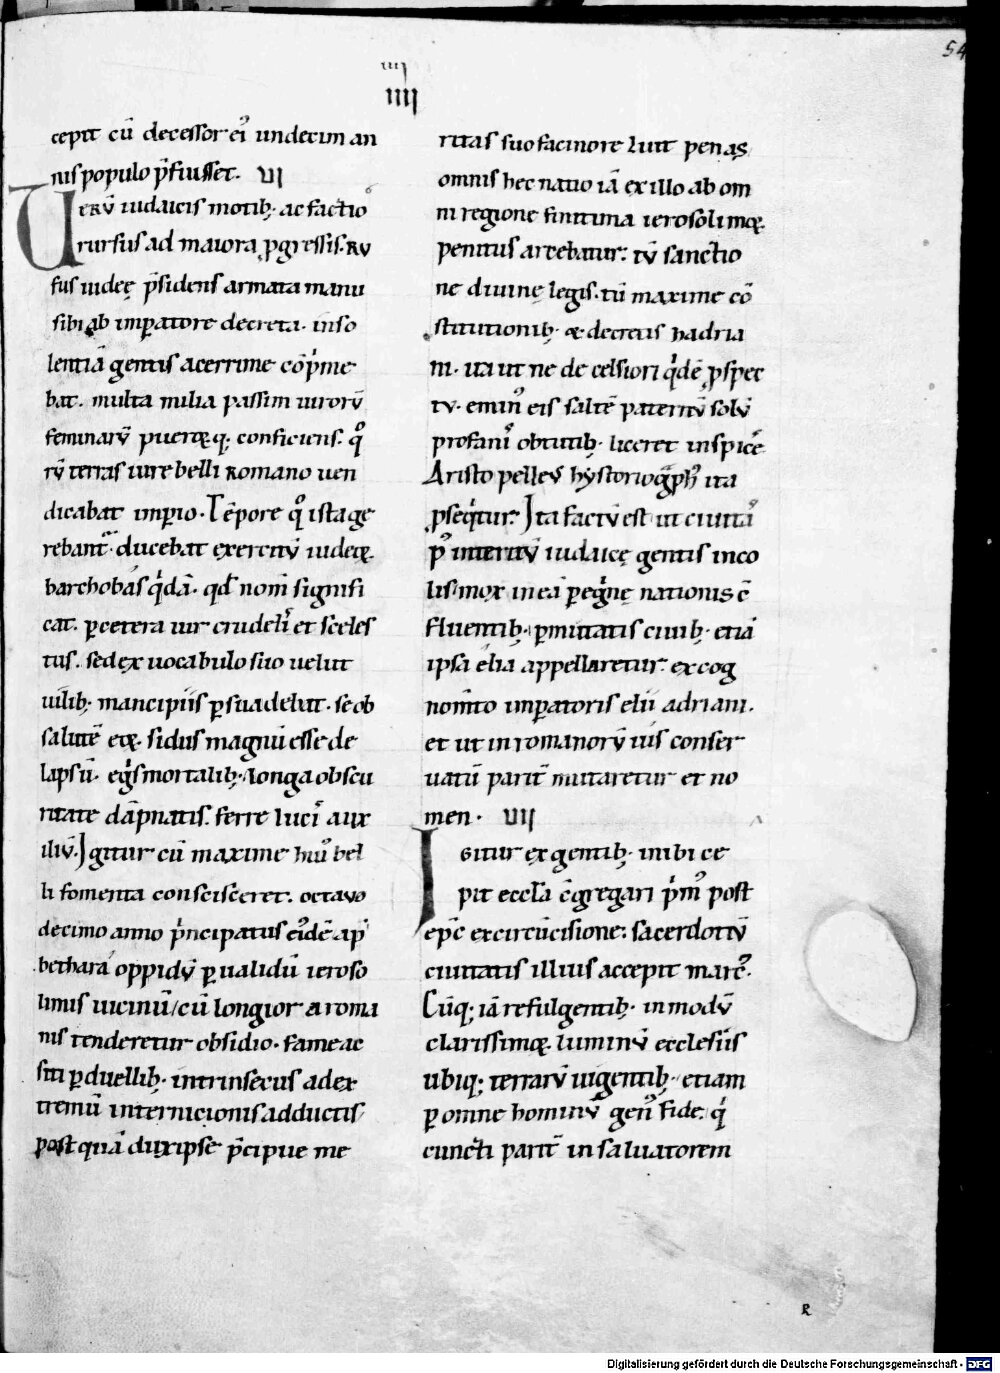 54
IIII
IIII
cepit cū decessor ei᾽ undecim an
nis populo p̄fuisset. VI
UERŪ iudaicis motib; ac factio
rursus ad maiora ꝓgressis. RU
fus iudeę p̄sidens armata manu
sibi ab imꝑatore decreta. inso
lentiā gentis acerrime cōp̍me
bat. multa milia passim uirorū
feminarū puerorꝝ q; conficiens. qͦ
rū terras iure belli Romano uen
dicabat imꝑio. Tēpore qͦ ista ge
rebant᷑. ducebat exercitū iudeoꝝ.
barchobas q̍dā. qd̄ nom̄ signifi
cat. ꝑ cetera uir crudelis et sceles
tus. sed ex uocabulo suo uelut
uilib; mancipiis ꝑsuadebat. se ob
salutē eoꝝ. sidus magnū esse de
lapsū. eg̍s mortalib; & longa obscu
ritate dāpnatis. ferre luci᾽ aux
iliū. Igitur cū maxime hui᾽ bel
li fomenta consciscēret. octauo
decimo anno p̍ncipatus ei᾽dē ap᾽
bethara oppidū ꝑualidū ieroso
limis uicinū / cū longior a roma
nis tenderetur obsidio. fame ac
siti ꝑduellib; intrinsecus ad ex
tremū internicionis adductis
post quā dux ipse p̄cipue me
ritas suo facinore luit penas
omnis hec natio iā ex illo ab om
ni regione finitima ierosolimoꝝ.
penitus arcebatur: tū sanctio
ne diuinę legis. tū maxime cō
stitutionib; & decretis hadria
ni. ita ut ne de celsiori q̍dē ꝓspec
tu. emin᾽ eis saltē paternū solū
profanis obtutib; liceret inspicē.
Aristo pelleus hystoriogͣph᾽ ita
ꝓseq̍tur. Ita factū est ut ciuitas
p᾽ interitū iudaicę gentis inco
lis. mox in eā ꝑegrinę nationis c̄
fluentib; ꝑmutatis ciuib; etiā
ipsa elia appellaretur. ex cog
nom̄to imꝑatoris elii adriani.
et ut in romanorū ius conser
uatū parit᷑ mutaretur et no
men. VII
IGITUR ex gentib; inibi ce
pit eccl̄a c̄gregari p̍m᾽ post
ep̄c ex circūcisione: sacerdotiū
ciuitatis illius accepit marc᾽.
Cūq; iā refulgentib; in modū
clarissimoꝝ luminū ecclesiis
ubiq; terrarū uigentib; etiam
ꝑ omne hominū gen᾽ fide. q̍
cuncti parit᷑ in saluatorem
R
Digitalisierung gefördert durch die Deutsche Forschungsgemeinschaft - DFG